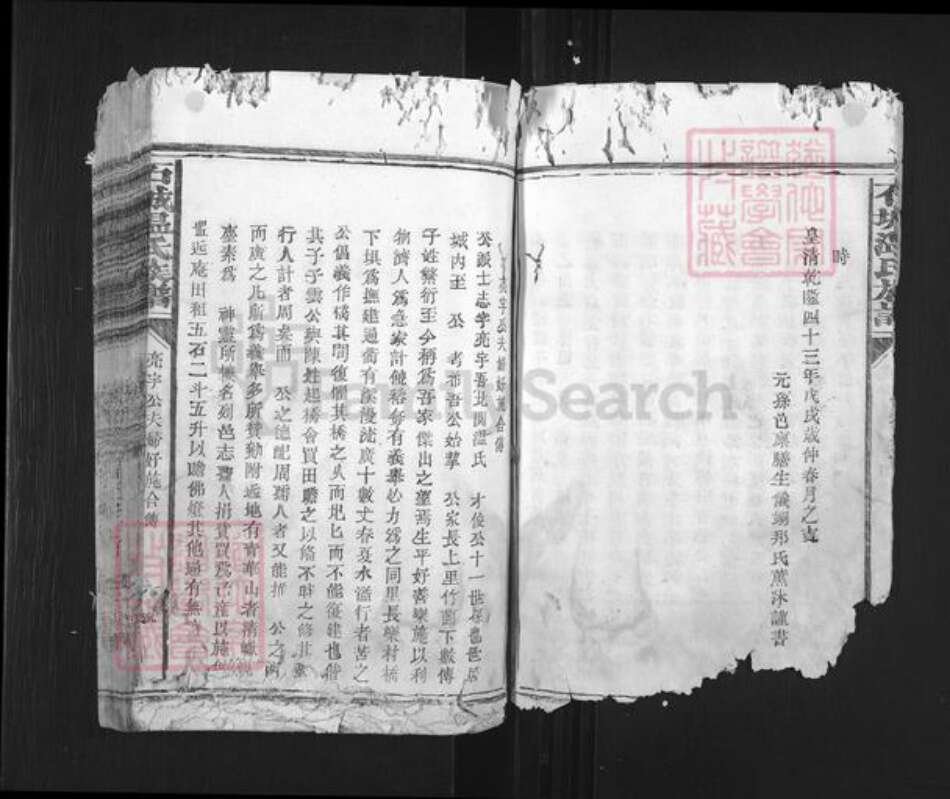 時
皇清乾隆四十三年戊戌歲仲春月之吉
元孫邑廩膳生儀翊邦氏薰沐謹書
亮宇公夫婦好施合傳
公諱士志字亮宇吾北關溫氏 才俊公十一世孫也世居
城內至 公 考希吾公始挈 公家長上里竹園下數傳
子姓繁衍至今稱為吾家傑出之望焉生平好善樂施以利
物濟人為急家計饒裕每有義舉必力為之同里長樂村橋
下垻為撫建通衢有溪漫流廣十數丈春夏水溢行者苦之
公倡義作橋其間復慮其橋之久而圮圮而不能復建也偕
其子子雲公與陳姓起橋會買田贍之以備不時之修其為
行人計者周矣而 公之德配周孺人者又能推 公之心
而廣之凡前為義舉多所贊勷附近地有 寒山者清幽
塵素為 神靈所棲名列邑志孺人捐貲買為己產以施僧
置近庵田租五石二斗五升以贍佛燈其他通有無
石城溫氏族譜
亮宇公夫婦好施合傳
石城溫氏族譜
FamilySearch